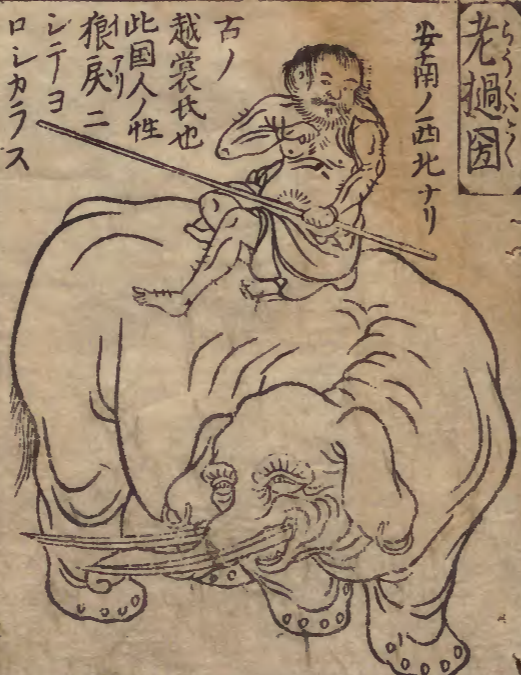 老撾国
らうくハこく
安南ノ西北ナリ
古ノ
越裳氏也
此国人ノ性
狼戻ニ
シテヨ
ロシカラス